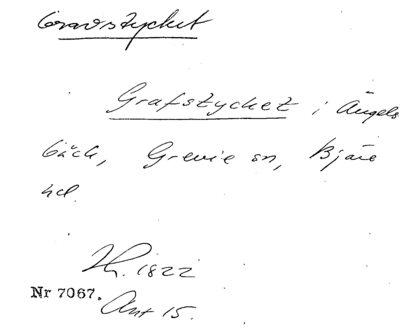 Gravstycket
Grafstycket i Ängels
bäck, Grevie sn, Bjäre
hd.
Th. 1822
Nr 7067. Akt 15.